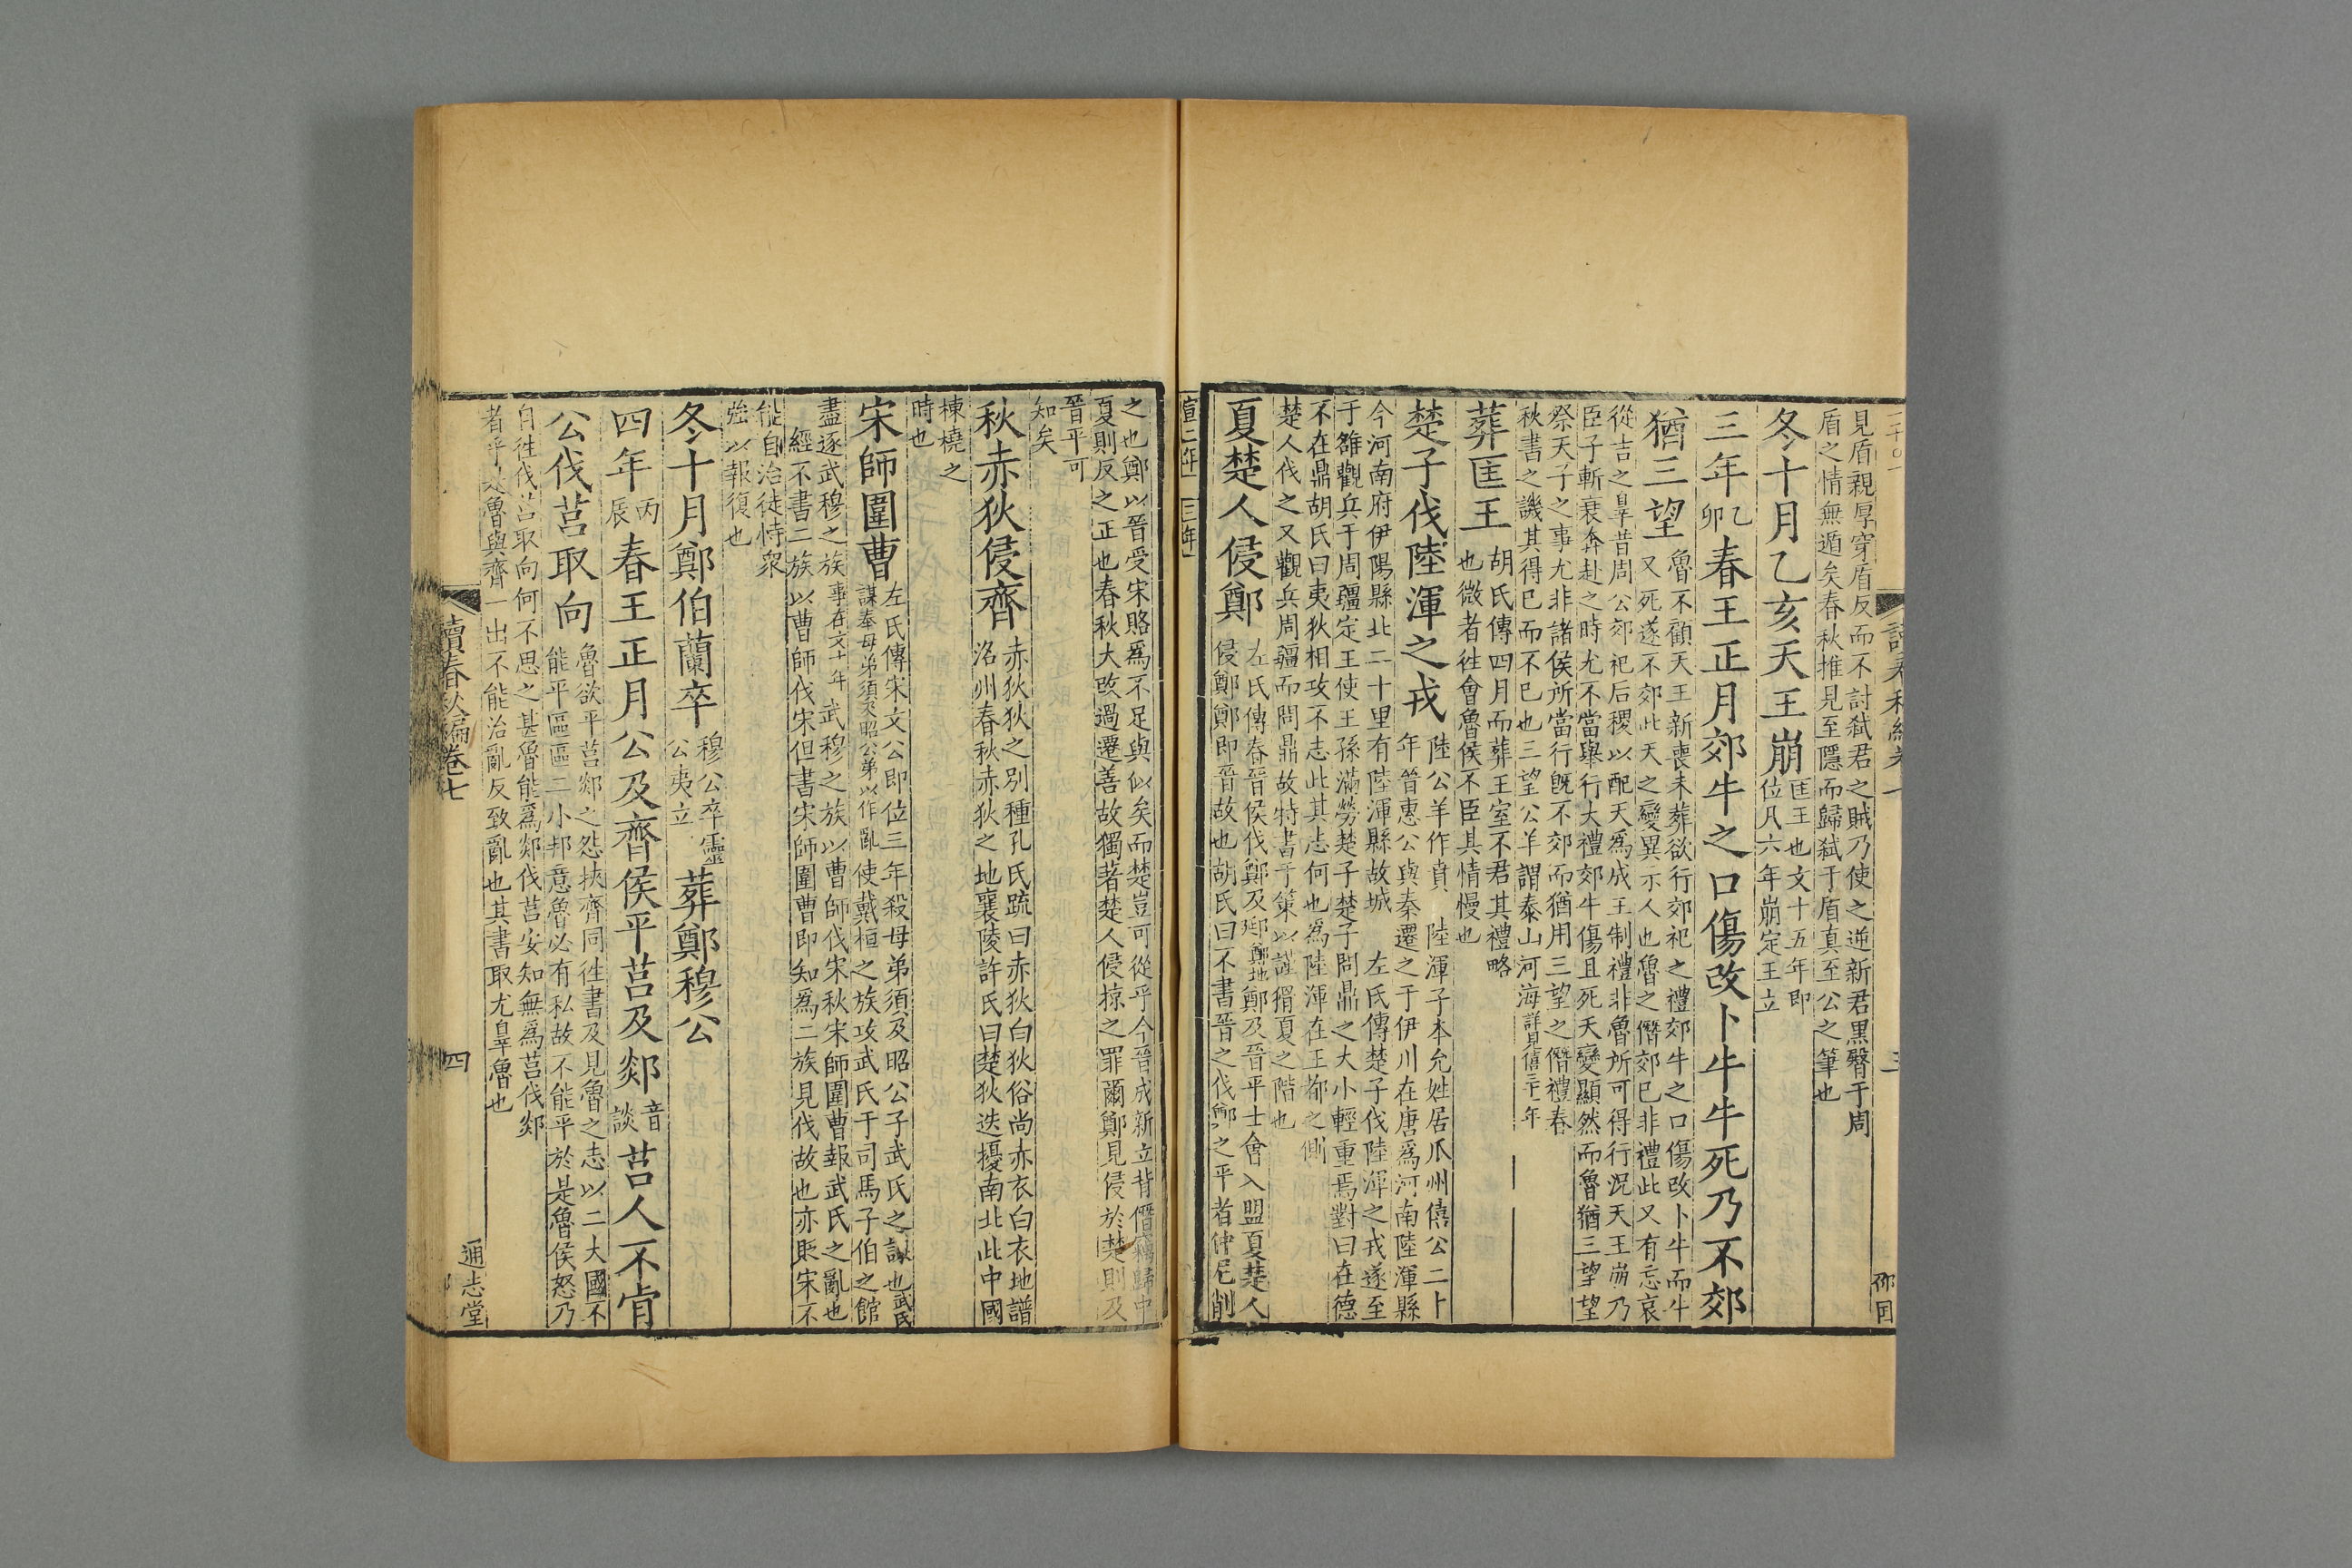 見盾親厚穿盾反而不討弑君之賊乃使之逆新君黑臀于周
盾之情無遁矣春秋推見至隱而歸弑于盾真至公之筆也
冬十月乙亥天王崩匡王也文十五年即
位凡六年崩定王立
三年乙卯春王正月郊牛之口傷改卜牛牛死乃不郊
猶三望魯不顧天王新喪未葬欲行郊祀之禮郊牛之口傷改卜牛而牛
又死遂不郊此天之變異示人也魯之僭郊已非禮此又有忘哀
從吉之辠昔周公郊祀后稷以配天爲成王制禮非魯所可得行況天王崩乃
臣子斬衰奔赴之時尤不當舉行大禮郊牛傷且死天變顯然而魯猶三望望
祭天子之事尤非諸侯所當行旣不郊而猶用三望之僭禮春
秋書之譏其得已而不已也三望公羊謂泰山河海詳見僖三十一年
葬匡王胡氏傳四月而葬王室不君其禮略
也微者徃會魯侯不臣其情慢也
楚子伐陸渾之戎陸公羊作賁 陸渾子本允姓居瓜州僖公二十
年晉惠公與秦遷之于伊川在唐爲河南陸渾縣
今河南府伊陽縣北二十里有陸渾縣故城 左氏傳楚子伐陸渾之戎遂至
于雒觀兵于周疆定王使王孫滿勞楚子楚子問鼎之大小輕重焉對曰在德
不在鼎胡氏曰夷狄相攻不志此其志何也爲陸渾在王都之側
楚人伐之又觀兵周疆而問鼎故特書于策以謹猾夏之階也
夏楚人侵鄭左氏傳春晉侯伐鄭及郔鄭地鄭及晉平士會入盟夏楚人
侵鄭鄭即晉故也胡氏曰不書晉之伐鄭之平者仲尼削
宣二年 三年
之也鄭以晉受宋賂爲不足與似矣而楚豈可從乎今晉成新立背僭竊歸中
夏則反之正也春秋大改過遷善故獨著楚人侵掠之罪爾鄭見侵於楚則及
晉平可
知矣
秋赤狄侵齊赤狄狄之别種孔氏䟽曰赤狄白狄俗尚赤衣白衣地譜
洺州春秋赤狄之地襄陵許氏曰楚狄迭擾南北此中國
棟橈之
時也
宋師圍曹左氏傳宋文公即位三年殺母弟須及昭公子武氏之謀也武氏
謀奉母弟須及昭公弟以作亂使戴桓之族攻武氏于司馬子伯之館
盡逐武穆之族事在文十八年武穆之族以曹師伐宋秋宋師圍曹報武氏之亂也
經不書二族以曹師伐宋但書宋師圍曹即知爲二族見伐故也亦貶宋不
能自治徒恃衆
強以報復也
冬十月鄭伯蘭卒穆公卒靈
公夷立葬鄭穆公
四年丙辰春王正月公及齊侯平莒及郯音談莒人不肯
公伐莒取向魯欲平莒郯之怨挾齊同徃書及見魯之志以二大國不
能平區區二小邦意魯必有私故不能平於是魯侯怒乃
自徃伐莒取向何不思之甚魯能爲郯伐莒安知無爲莒伐郯
者乎是魯與齊一出不能治亂反致亂也其書取尤辠魯也
讀春秋編卷七
四
通志堂